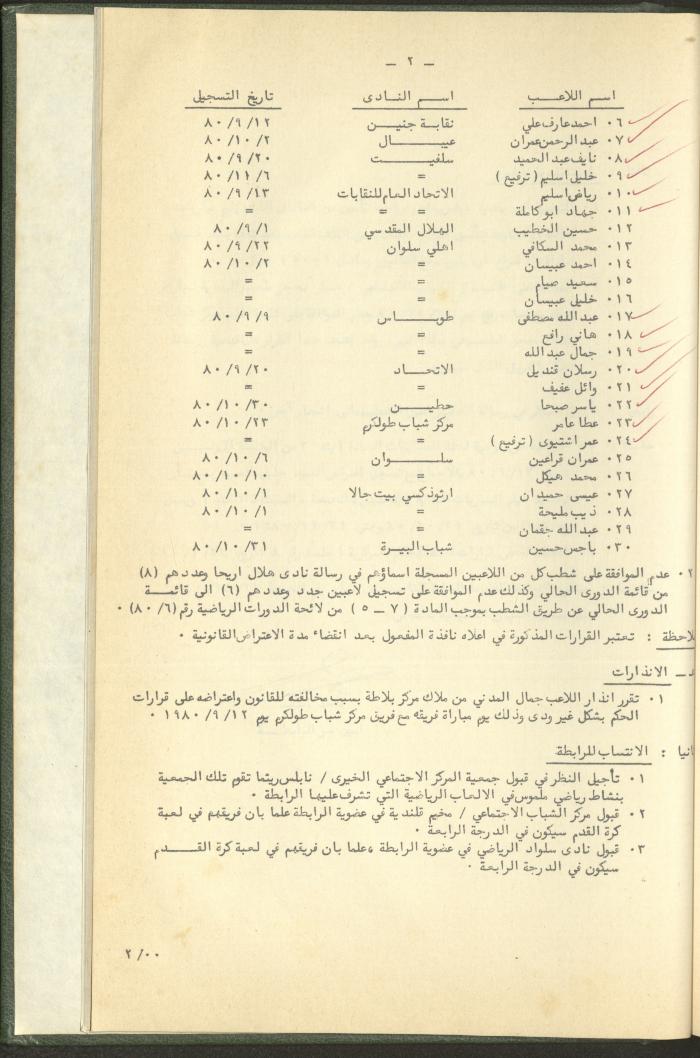 — ٢ —
اسم اللاعـــب اســم النــادى تاريخ التسجيل
٠٦ احمد عارف علي نقابـة جنيـــن ٨٠/٩/١٢
٠٧ عبد الرحمن عمران عيبــــــــال ٨٠/١٠/٢
٠٨ نايف عبد الحميد سلفيــــــت ٨٠/٩/٢٠
٠٩ خليل اسليم (ترفيع) = ٨٠/١١/٦
٠١٠ رياض اسليم الاتحاد العام للنقابات ٨٠/٩/٢٣
٠١١ جهاد ابو كاملة = = =
٠١٢ حسين الخطيب الهلال المقدسي ٨٠/٩/١
٠١٣ محمد السكافي اهلي سلوان ٨٠/٩/٢٢
٠١٤ احمد عبيسان = ٨٠/١٠/٢
٠١٥ سعيد صيام = =
٠١٦ خليل عبيسان = =
٠١٧ عبد الله مصطفى طوبـــــــاس ٨٠/٩/٩
٠١٨ هاني رافع = =
٠١٩ جمال عبد الله = =
٠٢٠ رسلان قنديل الاتحـــاد ٨٠/٩/٢٠
٠٢١ وائل عفيف = =
٠٢٢ ياسر صبحا حطيـــــن ٨٠/١٠/٣٠
٠٢٣ عطا عامر مركز شباب طولكرم ٨٠/١٠/٢٣
٠٢٤ عمر اشتيوى (ترفيع) = =
٠٢٥ عمران قراعين سلـــــــوان ٨٠/١٠/٦
٠٢٦ محمد هيكل = ٨٠/١٠/١٠
٠٢٧ عيسى حميدان ارثوذكسي بيت جالا ٨٠/١٠/١
٠٢٨ ذيب مليحة = ٨٠/١٠/١
٠٢٩ عبد الله جقمان = =
٠٣٠ باجس حسين شباب البيـــرة ٨٠/١٠/٣١
٠٢ عدم الموافقة على شطب كل من اللاعبين المسجلة اسماؤهم في رسالة نادى هلال اريحا وعددهم (٨)
من قائمة الدورى الحالي وكذلك عدم الموافقة على تسجيل لاعبين جدد وعددهم (٦) الى قائمـــة
الدورى الحالي عن طريق الشطب بموجب المادة (٧ – ٥) من لائحة الدورات الرياضية رقم (٨٠/٦) ٠
لاحظة : تعتبر القرارات المذكورة في اعلاه نافذة المفعول بعد انقضاء مدة الاعتراض القانونية ٠
د — الانذارات
٠١ تقرر انذار اللاعب جمال المدني من ملاك مركز بلاطة بسبب مخالفته للقانون واعتراضه على قرارات
الحكم بشكل غير ودى وذلك يوم مباراة فريقه مع فريق مركز شباب طولكرم يوم ١٩٨٠/٩/١٢ ٠
انيا : الانتساب للرابطة
٠١ تأجيل النظر في قبول جمعية المركز الاجتماعي الخيرى / نابلس ريثما تقوم تلك الجمعية
بنشاط رياضي ملموس في الالعاب الرياضية التي تشرف عليها الرابطة ٠
٠٢ قبول مركز الشباب الاجتماعي / مخيم قلندية في عضوية الرابطة علما بان فريقهم في لعبة
كرة القدم سيكون في الدرجة الرابعة ٠
٠٣ قبول نادى سلواد الرياضي في عضوية الرابطة ، علما بان فريقهم في لعبة كرة القــــدم
سيكون في الدرجة الرابعة ٠
٢/٠٠